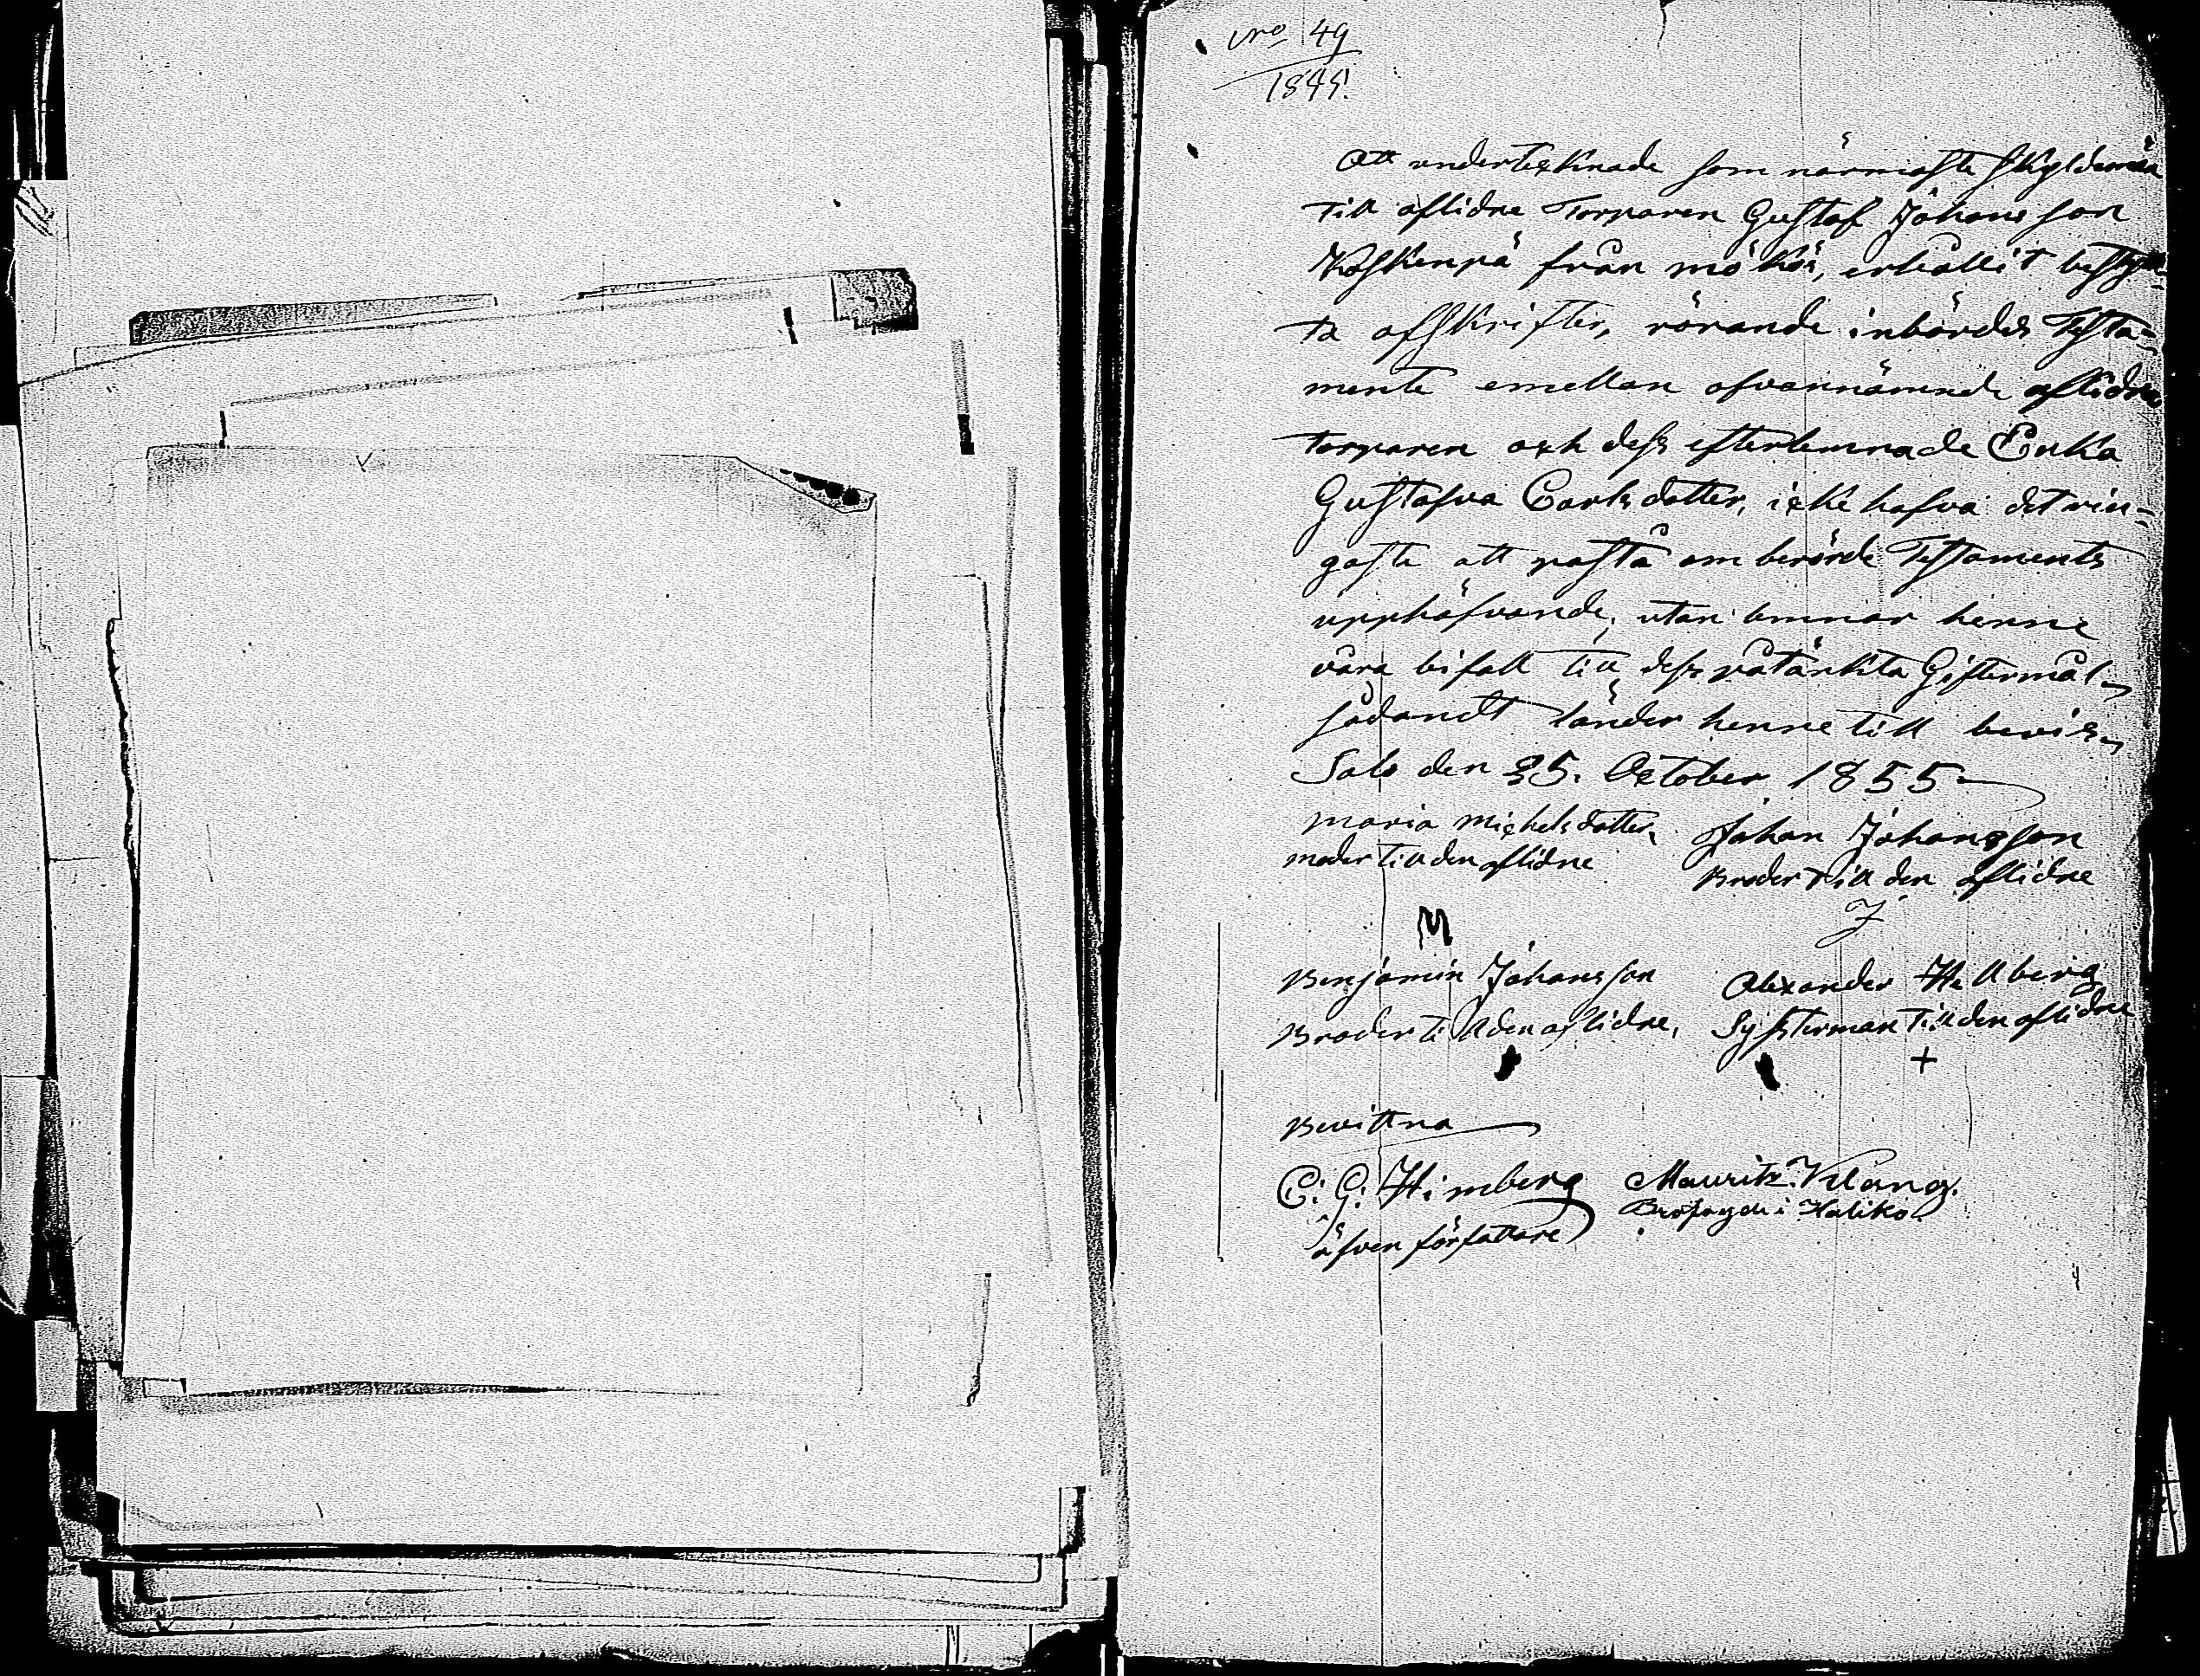 Nro 49
1855.
Att undertecknade som närmaste skyldemän
till aflidne Torparen Gustaf Johansson
Koskenpä från mökö, erhållit bestyrk-
ta afskrifter, rörande inbördes Testa-
mente emellan ofvannämnde aflidne
torparen och dess efterlemnade Enka
Gustafva Carlsdotter, icke hafva det rin-
gaste att påstå om berörde Testaments
upphäfvande, utan lemnar henne
våra bifall till dess påtänkta Giftermål
sådandt länder henne till bevis,
Salo den 25. October 1855
Maria Michelsdotter, Johan Johansson
moder till den aflidne Broder till den aflidne
M J
Benjamin Johansson Alexander Hellberg
Broder till den aflidne, Systerman till den aflidne
+
Bevittna
C: G: Himberg Mauritz Klang.
äfven författare i Haliko.